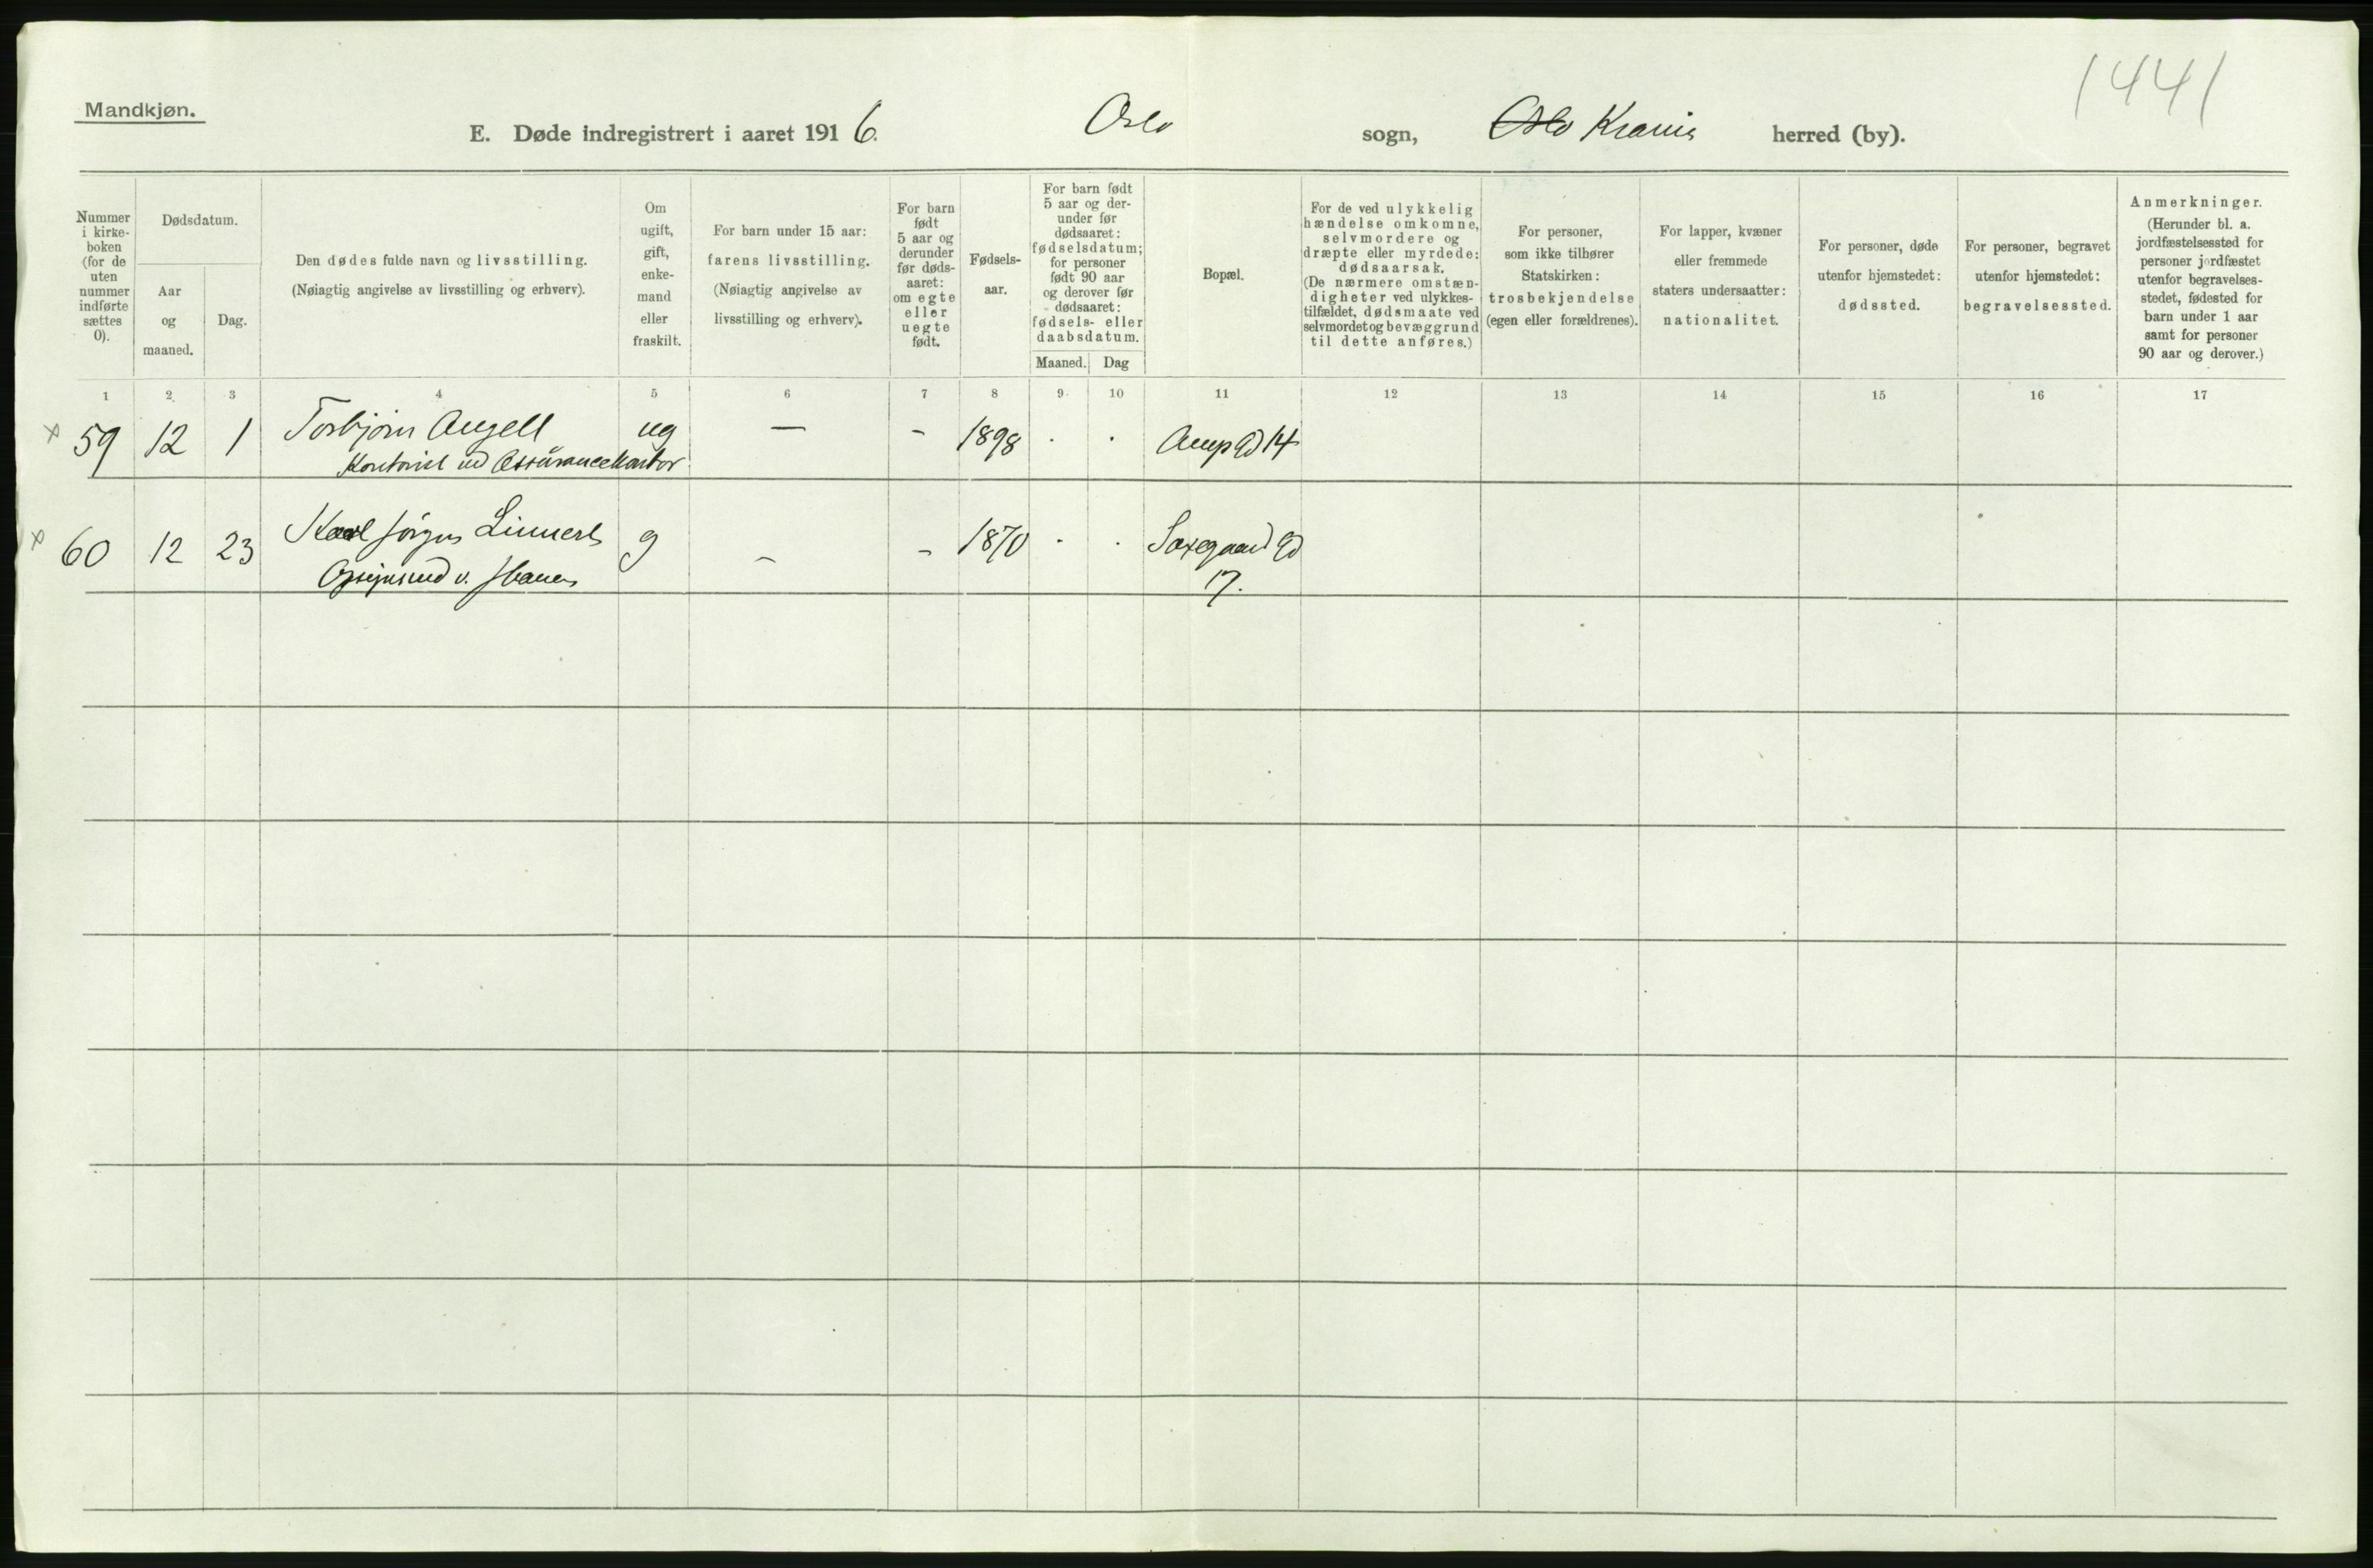 1441
Mandkjøn.
E. Døde indregistrert i aaret 1916. Oslo sogn, Oslo Krania herred (by).
Nummer
i kirke-
boken
(for de
uten
nummer
indførte
sættes
0).
Dødsdatum.
Aar
og
maaned.
Dag.
Den dødes fulde navn og livsstilling.
(Nøiagtig angivelse av livsstilling og erhverv).
Om
ugift,
gift,
enke-
mand
eller
fraskilt.
For barn under 15 aar:
farens livsstilling.
(Nøiagtig angivelse av
livsstilling og erhverv).
For barn
født
5 aar og
derunder
før døds-
aaret:
om egte
eller
uegte
født.
Fødsels-
aar.
For barn født
5 aar og der-
under før
dødsaaret:
fødselsdatum;
for personer
født 90 aar
og derover før
dødsaaret:
fødsels- eller
daabsdatum.
Maaned. Dag
Bopæl.
For de ved ulykkelig
hændelse omkomne,
selvmordere og
dræpte eller myrdede:
dødsaarsak.
(De nærmere omstæn-
digheter ved ulykkes-
tilfældet, dødsmaate ved
selvmordet og bevæggrund
til dette anføres.)
For personer,
som ikke tilhører
Statskirken:
trosbekjendelse
(egen eller forældrenes).
For lapper, kvæner
eller fremmede
staters undersaatter:
nationalitet.
For personer, døde
utenfor hjemstedet:
dødssted.
For personer, begravet
utenfor hjemstedet:
begravelsessted.
Anmerkninger.
(Herunder bl. a.
jordfæstelsessted for
personer jordfæstet
utenfor begravelses-
stedet, fødested for
barn under 1 aar
samt for personer
90 aar og derover.)
1 2 3 4 5 6 7 8 9 10 11 12 13 14 15 16 17
x 59 12 1 Torbjørn Angell ug — - 1898 . . Amp Gd 14
Kontorist ved Assurancekontor
x 60 12 23 Karl Jörgen g - - 1870 . . Saxegaard Gd
17.